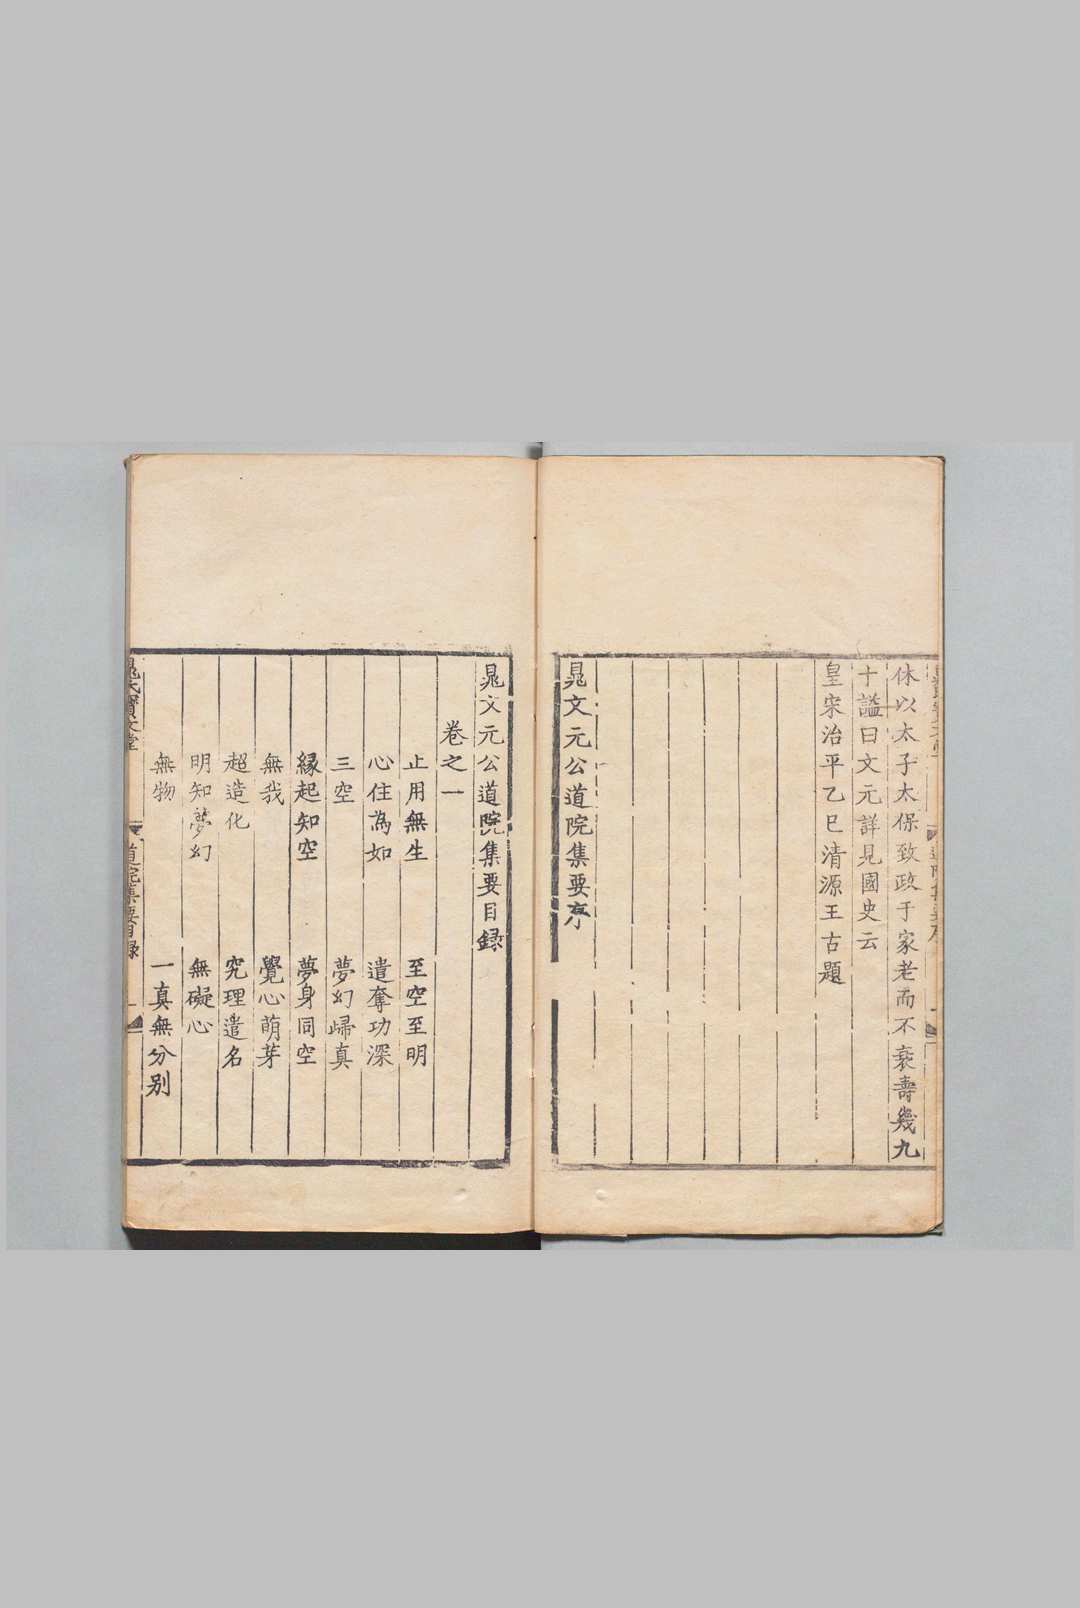 休以太子太保致政于家老而不衰壽幾九
十謚曰文元詳見國史云
皇宋治平乙巳清源王古題
晁文元公道院集要序
晁文元公道院集要目録
卷之一
止用無生 至空至明
心住為如 遣奪功深
三空 夢幻歸真
縁起知空 夢身同空
無我 覺心萌芽
超造化 究理遣名
明知夢幻 無礙心
無物 一真無分别
晁氏寳文堂 道院集要目録